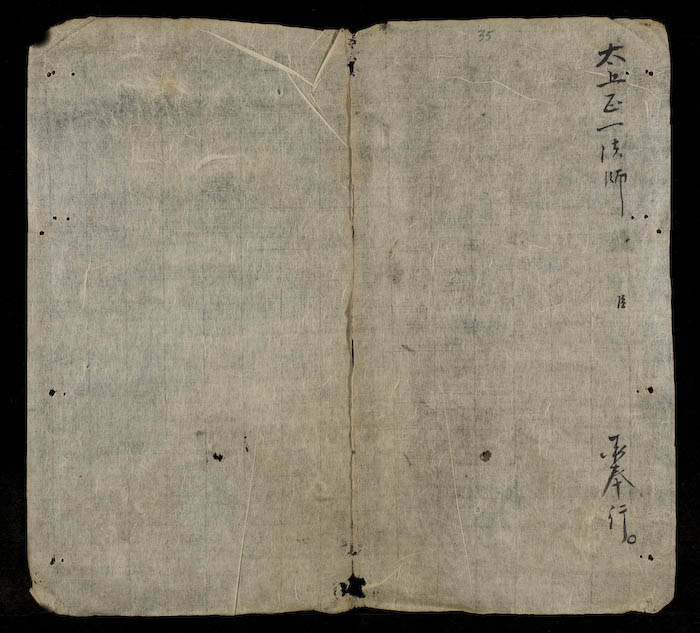 太上正一法師 臣 承奉行。
35